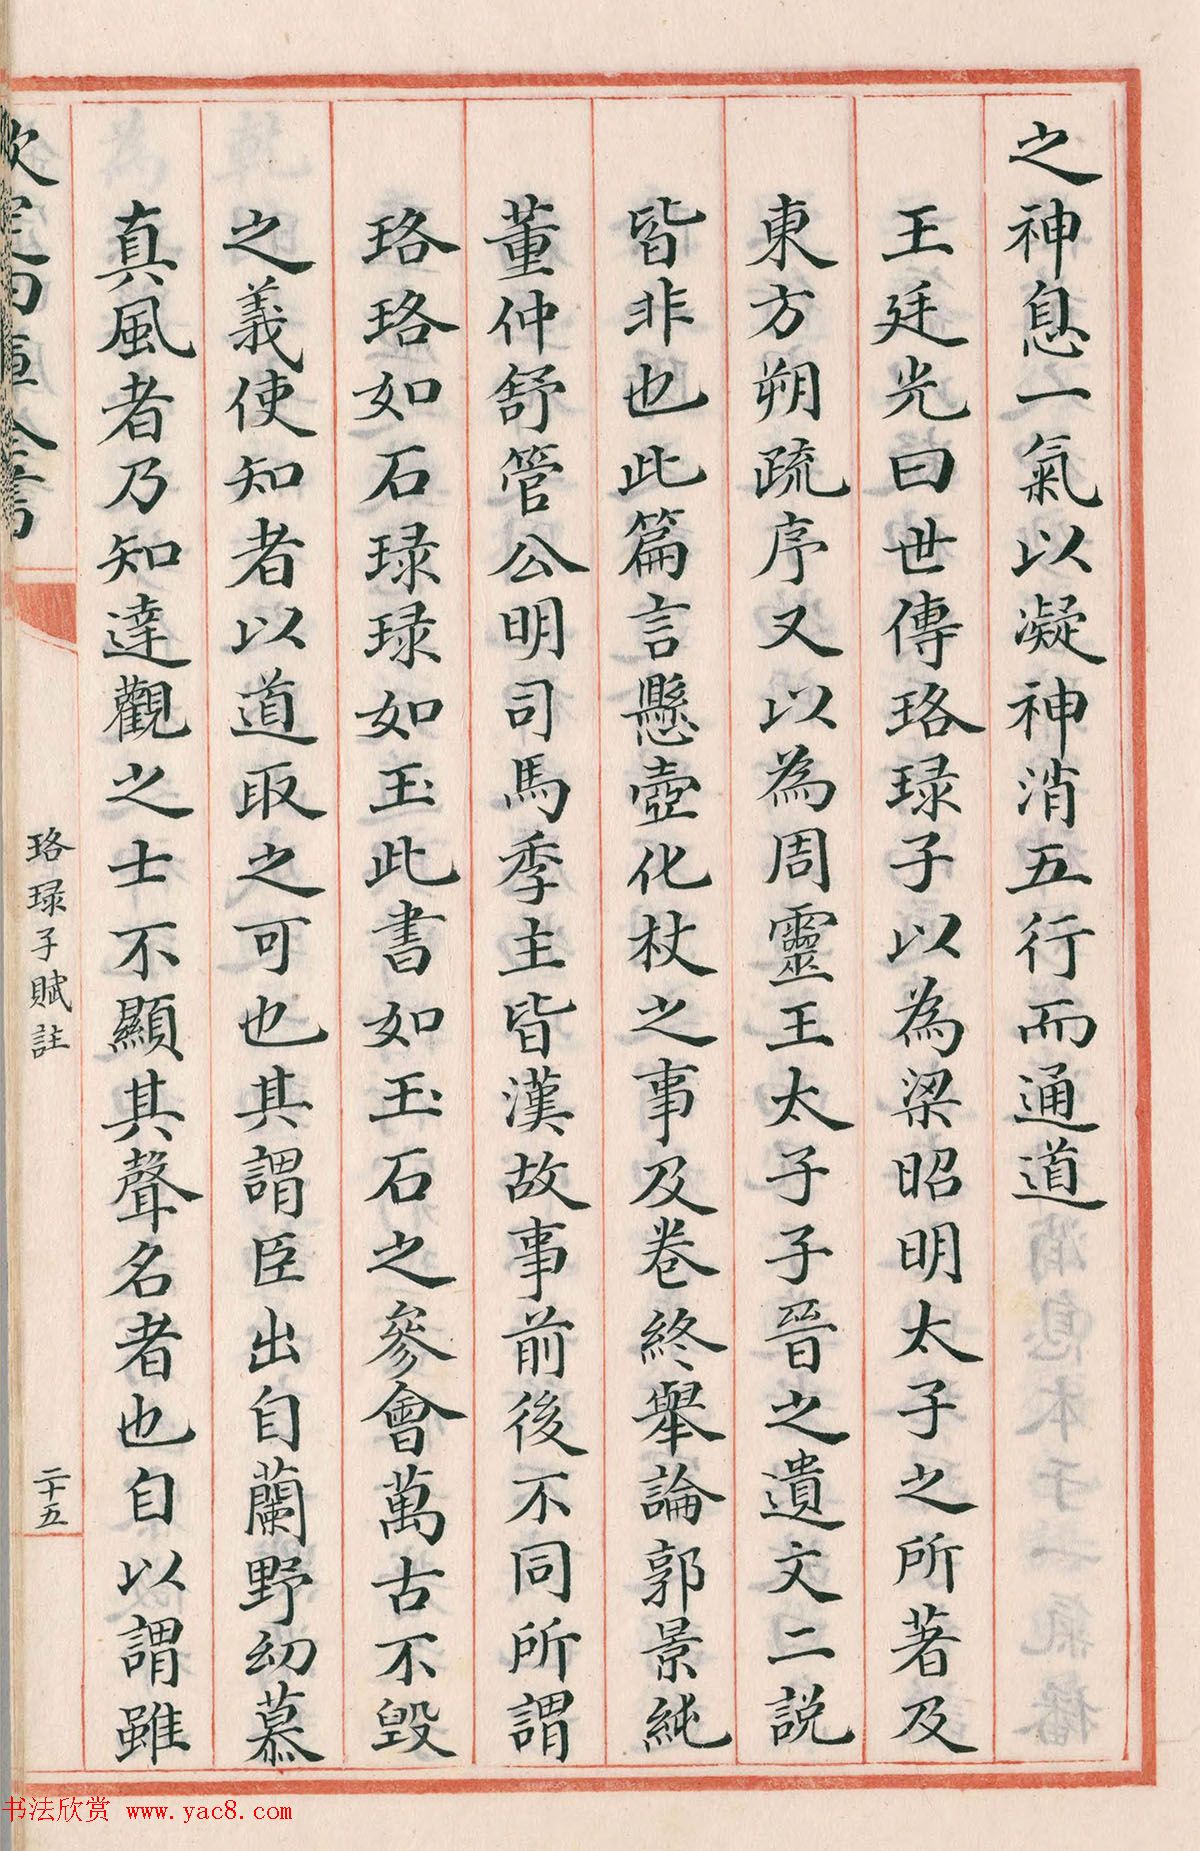 之神息一氣以凝神消五行而通道
王廷光曰世傳珞琭子以為梁昭明太子之所著及
東方朔疏序又以為周靈王太子子晉之遺文二説
皆非也此篇言懸壺化杖之事及卷終舉論郭景純
董仲舒管公明司馬季主皆漢故事前後不同所謂
珞珞如石琭琭如玉此書如玉石之參會萬古不毀
之義使知者以道取之可也其謂臣出自蘭野幼慕
真風者乃知達觀之士不顯其聲名者也自以謂雖
欽定四庫全書
珞琭子賦註
二十五
书法欣赏 www.yac8.com